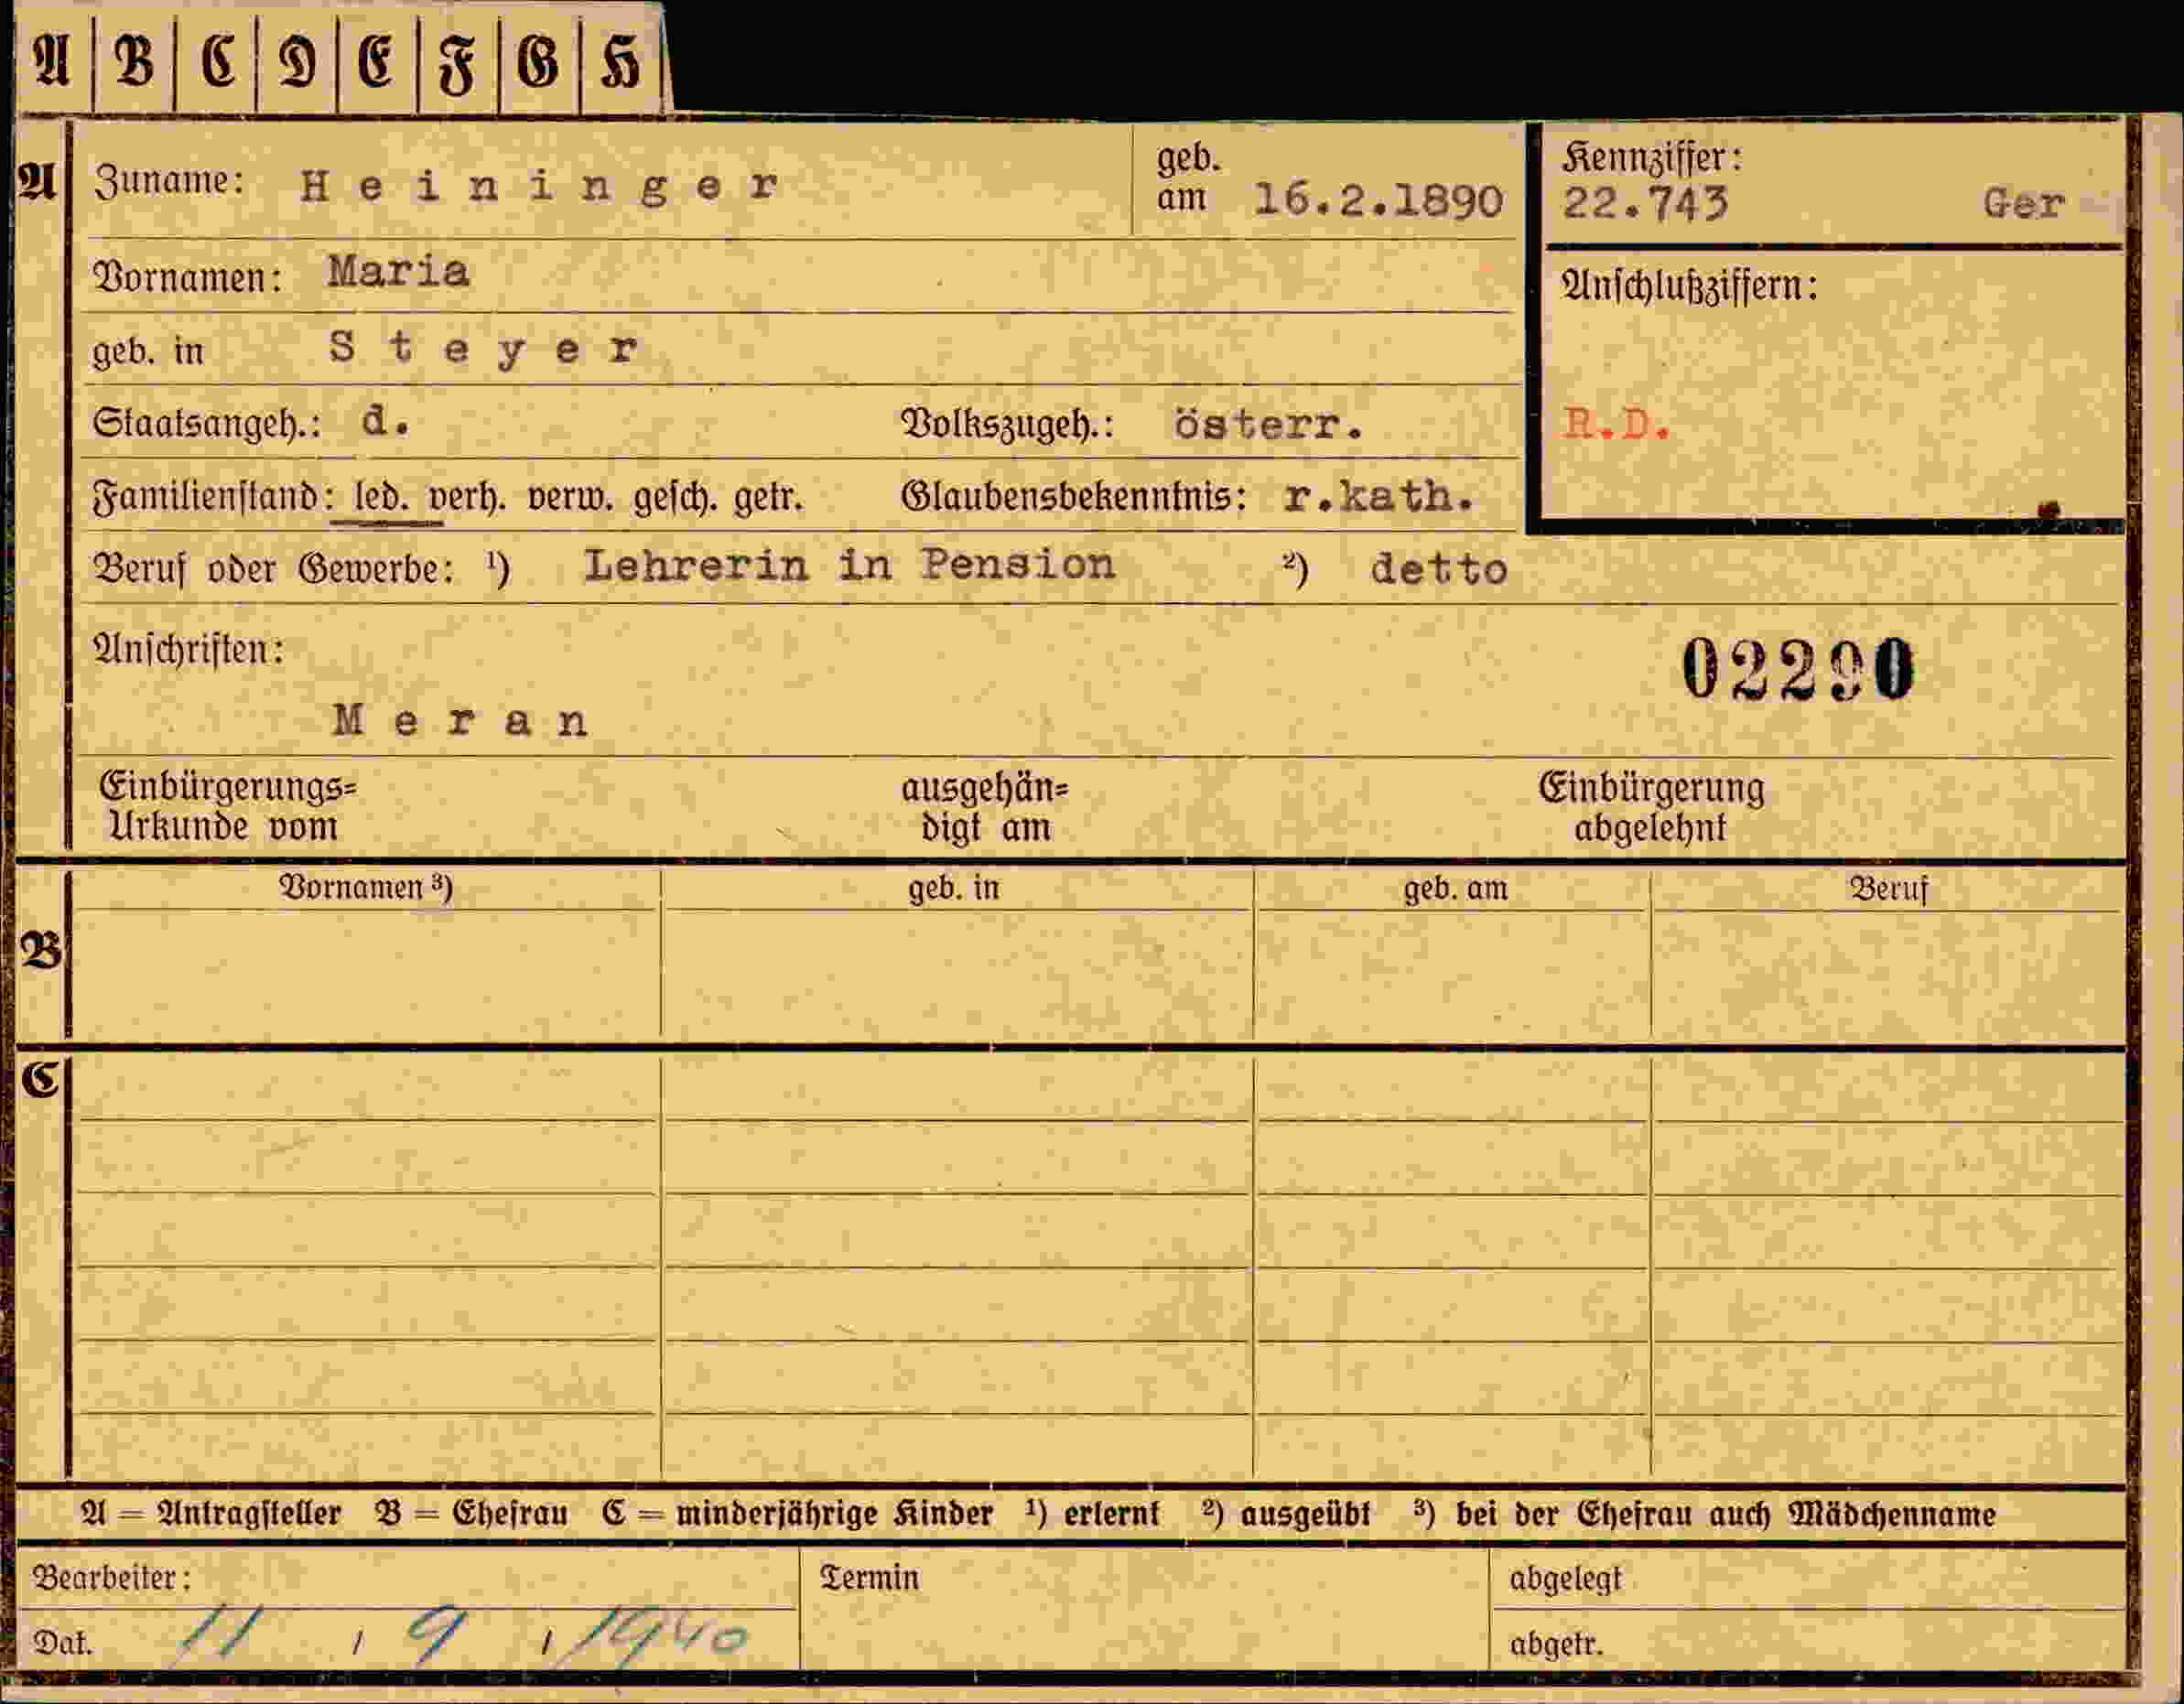 A B C D E F G H
A Zuname: Heininger geb. am 16.2.1890
Kennziffer:
22.743 Ger
Vornamen: Maria
Anschlußziffern:
geb. in Steyer
Staatsangeh.: d. Volkszugeh.: österr.
R.D.
Familienstand: led. verh. verw. gesch. getr. Glaubensbekenntnis: r.kath.
Beruf oder Gewerbe: ¹) Lehrerin in Pension ²) detto
Anschriften:
02290
Meran
Einbürgerungs= ausgehän= Einbürgerung
Urkunde vom digt am abgelehnt
Vornamen ³) geb. in geb. am Beruf
B
C
A = Antragsteller B = Ehefrau C = minderjährige Kinder ¹) erlernt ²) ausgeübt ³) bei der Ehefrau auch Mädchenname
Bearbeiter: Termin abgelegt
Dat. 11 / 9 / 1940 abgetr.